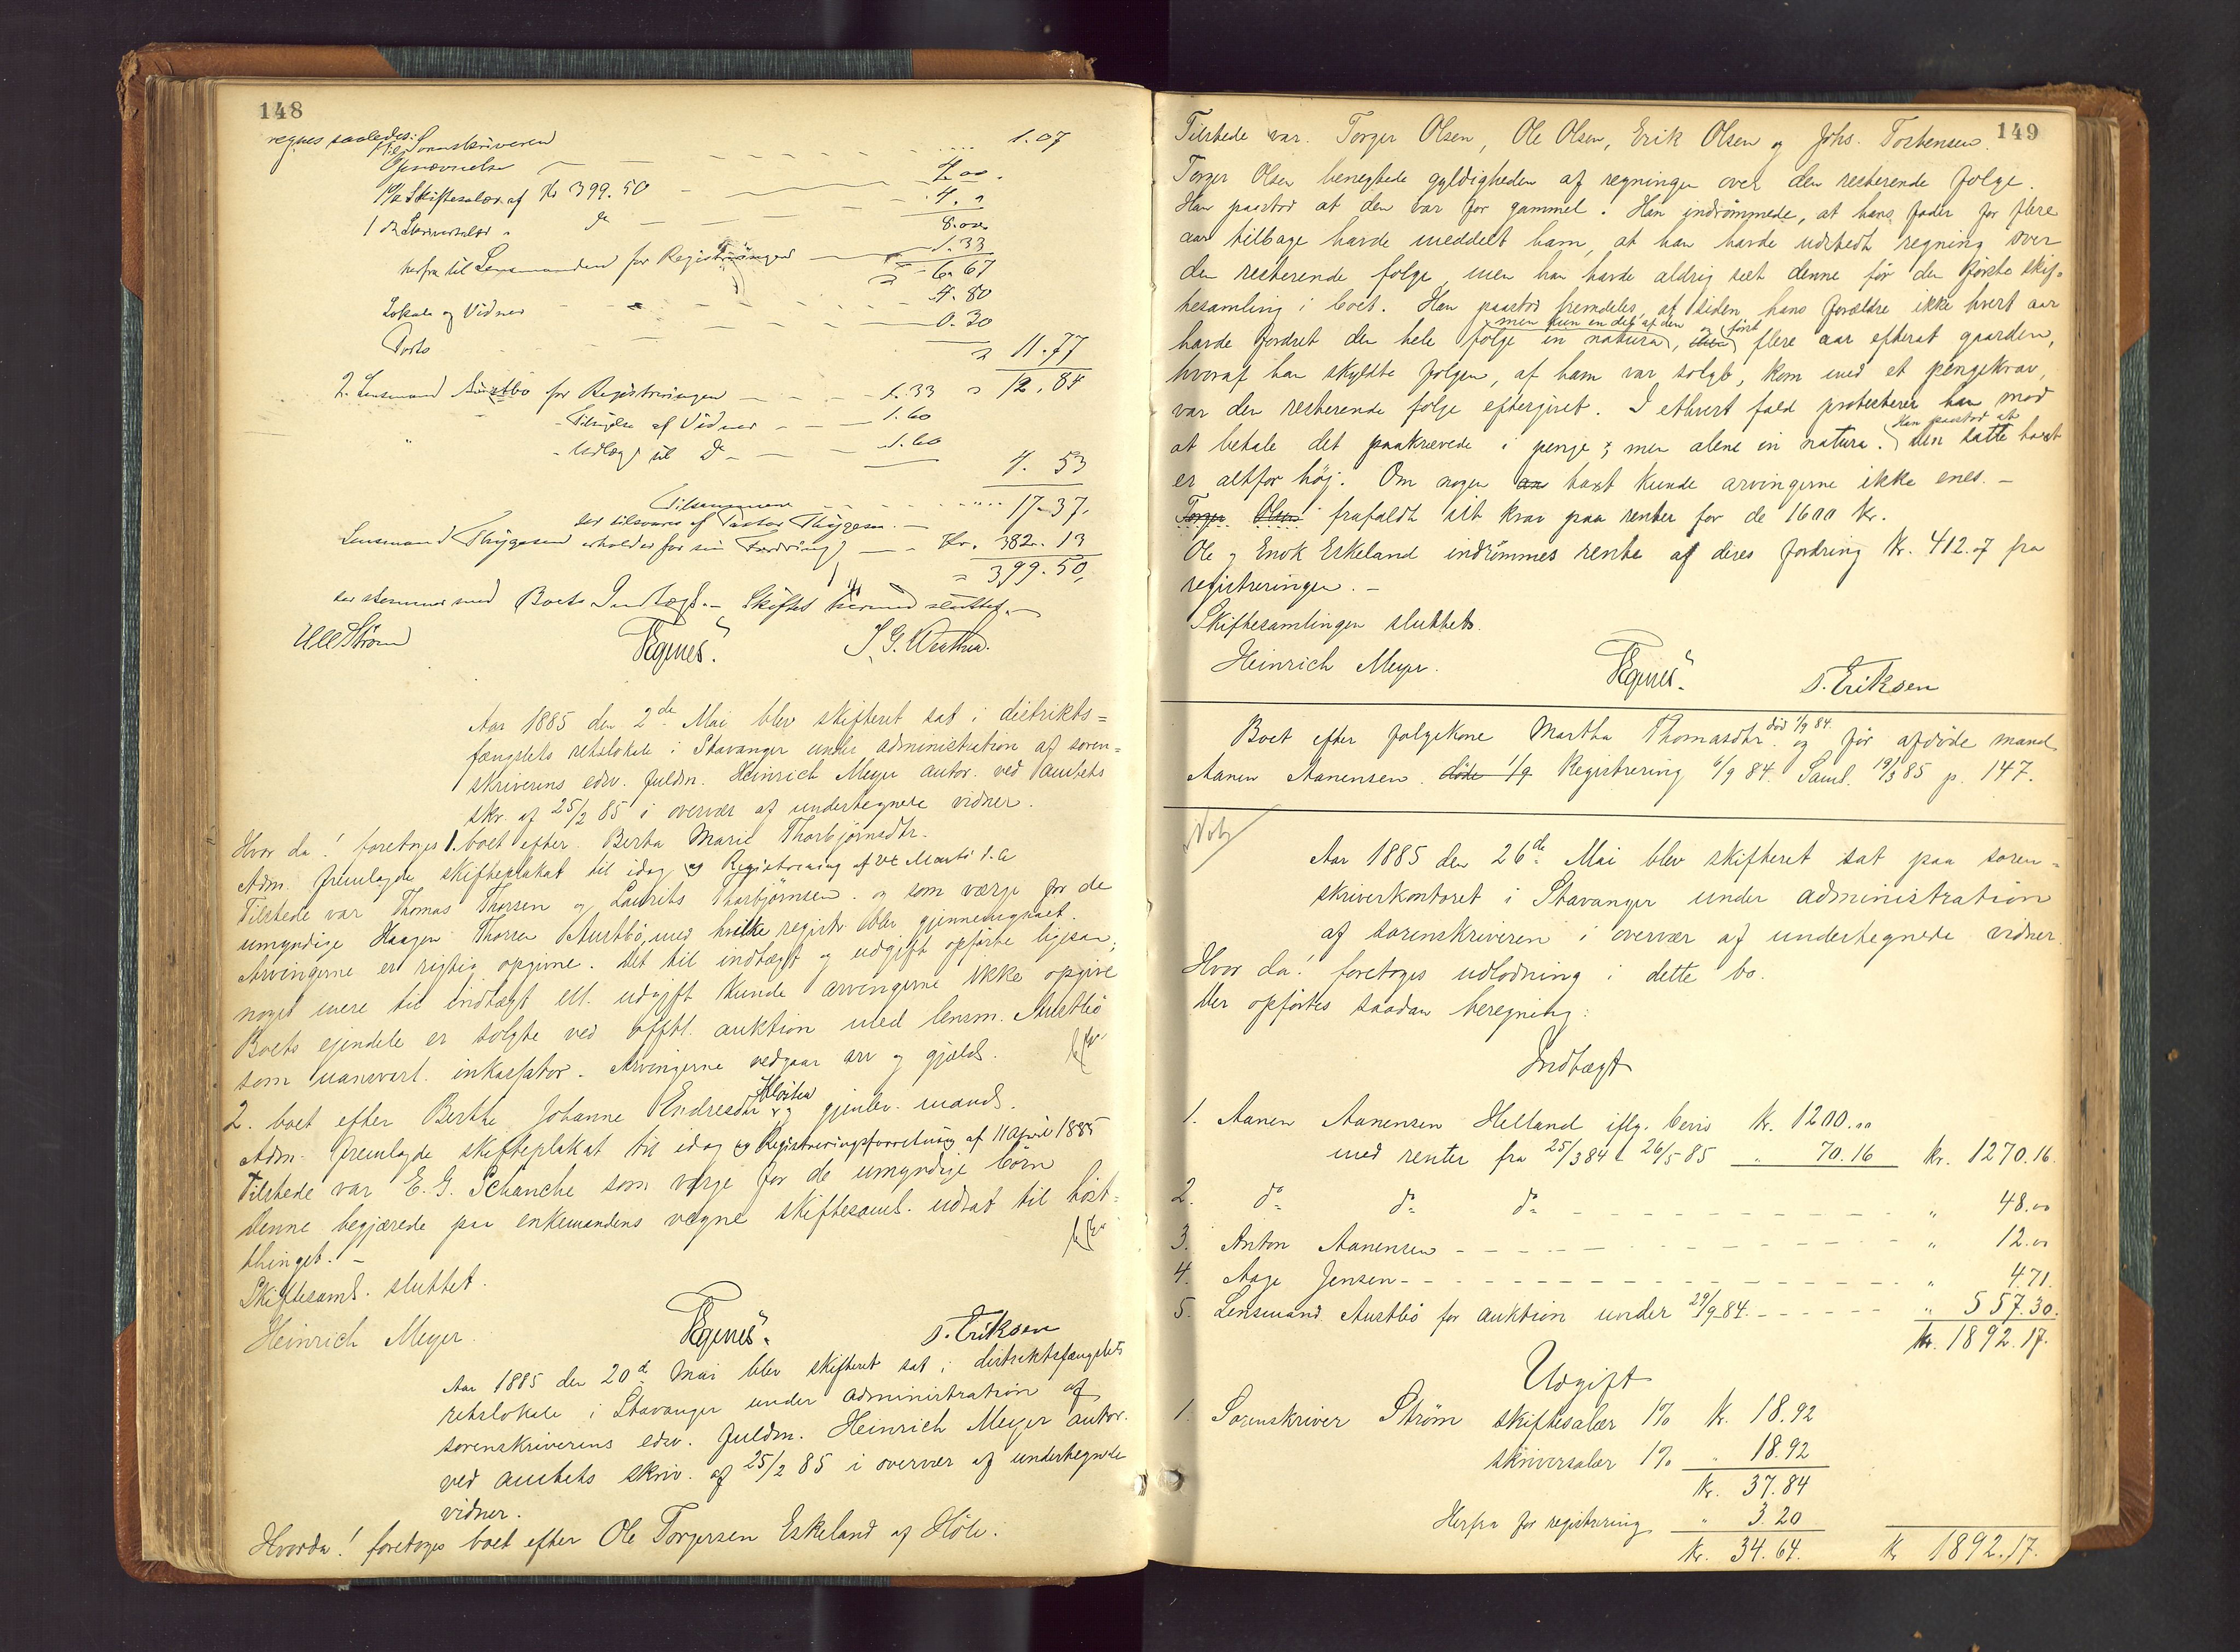 148
regnes saaledes:
til Sorenskriveren
Opnævnelse 1.07
1% Skiftesalær af Kr 399.50 4.00.
1 % Skriversalær " do 4. "
8.00
herfra til Lensmanden for Registreringen 1.33
" 6.67
Lokale og Vidner 4.80
Porto 0.30
" 11.77
" 12.84
2. Lensmand Austbø for Registreringen 1.33
Tilsigelse af Vidner 1.60
Udlæg til Do 1.60
4. 53
Tilsammen 17.37.
der tilsvares af Pastor Thygesen.
Lensmand Thygesen erholder for sin Fordring Kr. 382.13
= 399.50,
der stemmer med Boets Indtægt. Skiftet hermed sluttet.
Strøm Egenes. J. G.
Aar 1885 den 2de Mai blev skifteret sat i distrikts=
fængslets retslokale i Stavanger under administration af soren=
skriverens edsv. fuldm. Heinrich Meyer autor. ved amtets
skr. af 25/2 85 i overvær af undertegnede vidner.
Hvor da! foretoges 1. boet efter Berta Marie Thorbjørnsdtr.
Adm. fremlagde skifteplakat til idag og Registrering af Marts d. A
Tilstede var Thomas Thorsen og Laurits Thorbjørnsen. og som værge for de
umyndige Haagen Thorsen Austbö, med hvilke registr. blev gjennemgaaet.
Arvingerne er rigtig opgivne. Det til indtægt og udgift opförte ligesaa;
noget mere til indtægt ell. udgift kunde arvingerne ikke opgive
Boets ejendele er solgte ved offtl. auktion med lensm. Austbö
som uansvarl. inkassator. Arvingerne vedgaar arv og gjæld.
2. boet efter Berthe Johanne Endresdtr Kloster og gjenlev. mand.
Adm. fremlagde skifteplakat til idag og Registreringsforretning af 11 April 1885
Tilstede var E. G. Schanche som værge for de umyndige börn
denne begjærede paa enkemandens vegne skiftesaml. udsat til höst=
thinget. -
Skiftesaml. sluttet.
Heinrich Meyer Egenes. S. Eriksen
Aar 1885 den 20de Mai blev skifteret sat i distriktsfængslets
retslokale i Stavanger under administration af
sorenskriverens edsv. fuldm. Heinrich Meyer autor.
ved amtets skriv. af 25/2 85 i overvær af undertegnede
vidner.
Hvorda! foretoges boet efter Ole Torgersen Eskeland af Höle.
149
Tilstede var. Torger Olsen, Ole Olsen, Erik Olsen og Johs. Torstensen.
Torger Olsen benegtede gyldigheden af regningen over den resterende folge.
Han paastod at den var for gammel. Han indrömmede, at hans fader for flere
aar tilbage havde meddelt ham, at han havde udstedt regning over
den resterende folge, men han havde aldrig seet denne för den förste skif=
tesamling i boet. Han paastod fremdeles, at siden hans forældre ikke hvert aar
havde fordret den hele folge in natura, men kun en del af den og först flere aar efterat gaarden,
hvoraf han skyldte folgen, af ham var solgt, kom med et pengekrav,
var den resterende folge eftergivet. I ethvert fald protesterer han mod
at betale det paakrævede i penge; men alene in natura. Han paastod at den satte taxt
er altfor höj. Om nogen an taxt kunde arvingerne ikke enes. -
Torger Olsen frafaldt sit krav paa renter for de 1600 kr.
Ole og Enok Eskeland indrömmes rente af deres fordring kr. 412.07 fra
registreringen. -
Skiftesamlingen sluttet.
Heinrich Meyer. Egenes. S. Eriksen
Boet efter folgekone Martha Thomasdtr. död 1/9 84. og för afdöde mand
Aanen Aanensen. döde 1/9 Registrering 6/9 84. Saml. 19/3 85 p. 147.
Aar 1885 den 26de Mai blev skifteret sat paa soren=
skriverkontoret i Stavanger under administration
af sorenskriveren i overvær af undertegnede vidner.
Hvor da! foretoges udlodning i dette bo.
Der opförtes saadan beregning:
Indtægt
1. Aanen Aanensen Helland iflg. bevis Kr. 1200.00
med renter fra 25/3 84 - 26/5 85 " 70.16 kr. 1270.16.
2. do do do " 48.00
3. Anton Aanensen " 12.00
4. Aage Jensen " 4.71.
5. Lensmand Austbö for auktion under 29/9 84. " 557.30.
kr. 1892.17.
Udgift
1. Sorenskriver Ström skiftesalær 1% Kr. 18.92
skriversalær 1% " 18.92
Kr. 37.84
Herfra for registrering " 3.20
Kr. 34.64. Kr 1892.17.